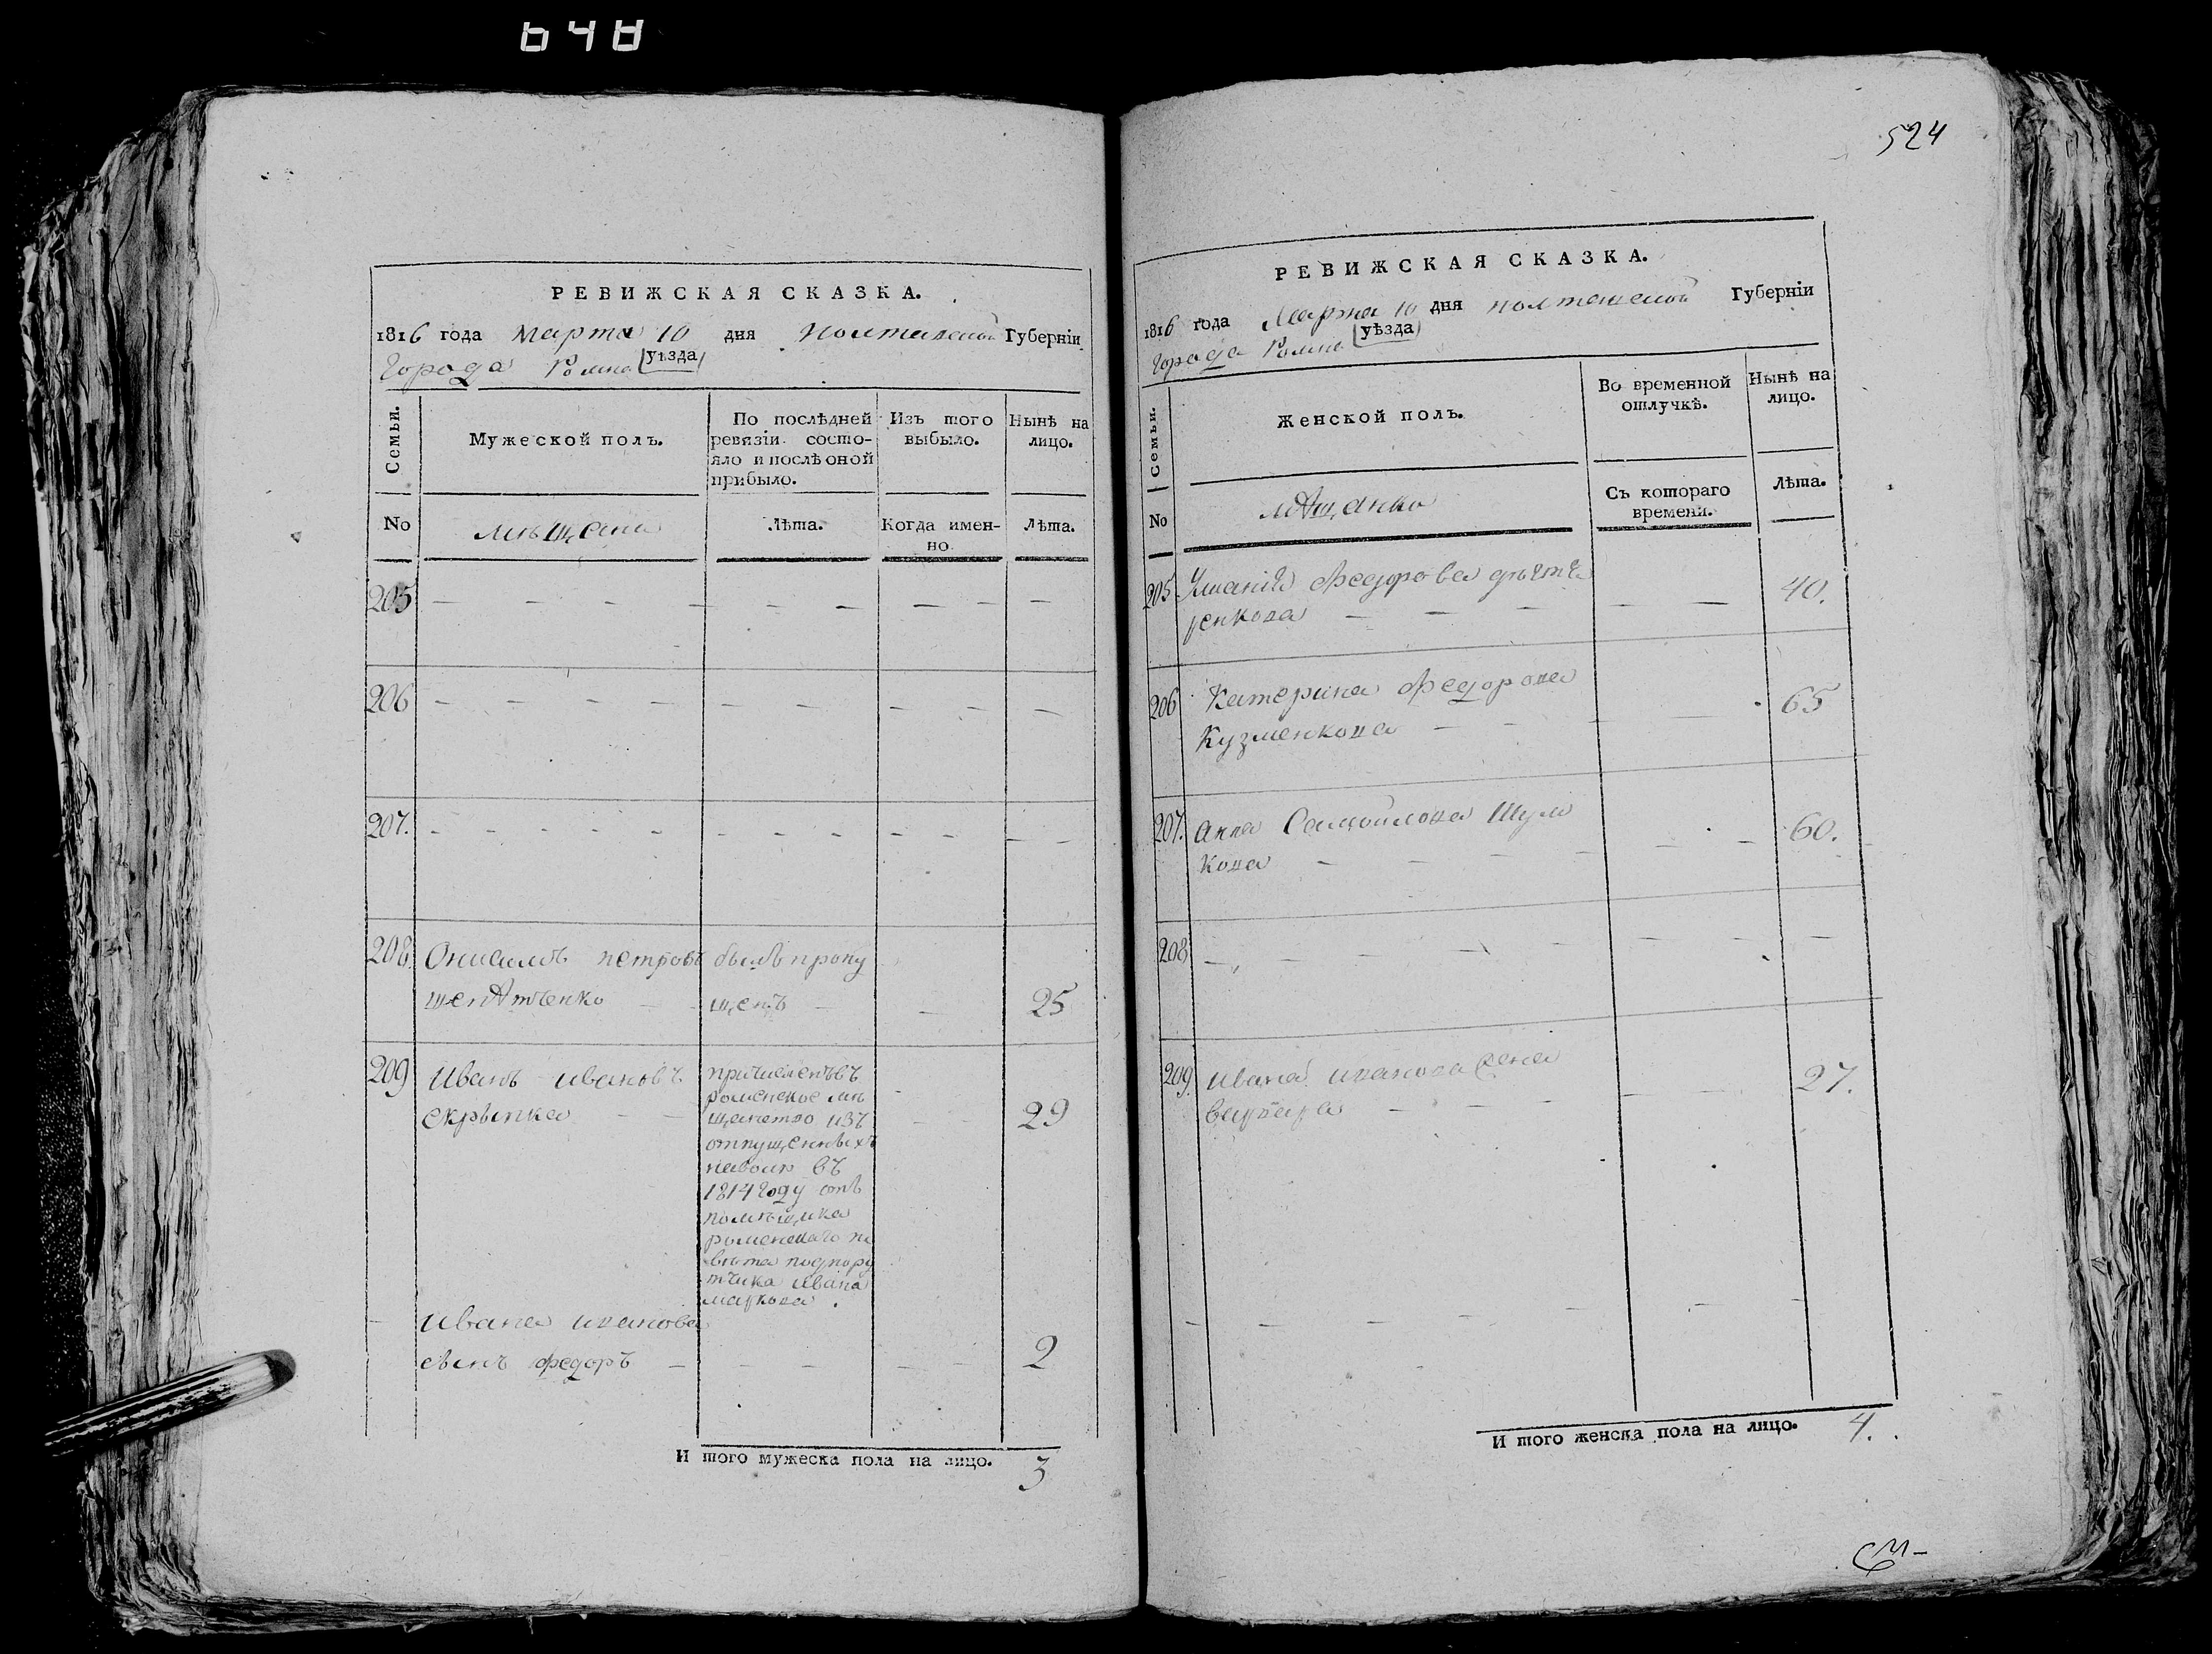 648
РЕВИЖСКАЯ СКАЗКА.
1816 года Марта 10 дня Полтавской Губерніи
Города Ромна (уѣзда)
Семьи.
Мужеской полъ.
По послѣдней ревизіи состо-
яло и послѣ оной
прибыло.
Изъ того
выбыло.
Нынѣ на
лицо.
No
мѣщане
Лѣта.
Когда имен-
но
Лѣта.
205 — — — — — — — — —
206 — — — — — — — — —
207. — — — — — — — — —
208. Онисимъ петровъ былъ пропу
шепѧтченко — щенъ — — 25
209 Иванъ ивановъ причисленъ въ
скрыпка — — роменское мѣ
щанство изъ 29
отпущенныхъ
наволю въ
1814 году отъ
помѣщика
роменскаго по
вѣта подпору
тчика ивана
маркова.
ивана иванова
сынъ федоръ — — — — — 2
И того мужеска пола на лицо. 3
524
РЕВИЖСКАЯ СКАЗКА.
1816 года Марта 10 дня полтавской Губерніи
Города Ромна (уѣзда)
Семьи.
Женской полъ.
Во временной
отлучкѣ.
Нынѣ на
лицо.
No
мѧщанки
Съ котораго
времени.
Лѣта.
205 Федорова 40.
206 Катерина Федорова 65
Кузменкова —
207. Анна Самойлова Шум 60.
кова —
208 — — — — — — — —
209. ивана иванова жена 27.
варвара — — —
И того женска пола на лицо. 4.